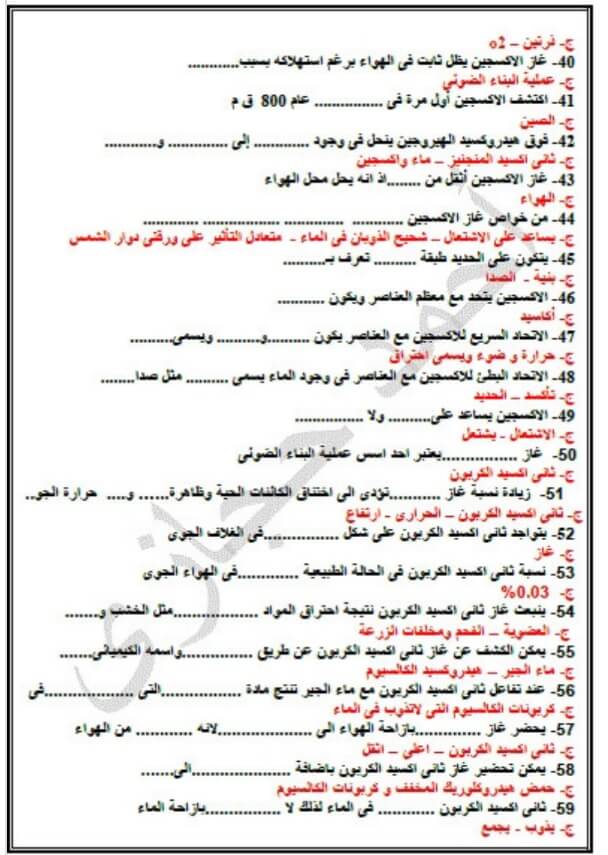 ج- ذرتين – o2
40- غاز الاكسجين يظل ثابت فى الهواء برغم استهلاكه بسبب............
ج- عملية البناء الضوئى
41- اكتشف الاكسجين أول مرة فى ................ عام 800 ق م
ج- الصين
42- فوق هيدروكسيد الهيروجين ينحل فى وجود ............. إلى .............. و............
ج- ثانى اكسيد المنجنيز – ماء واكسجين
43- غاز الاكسجين أثقل من ........اذ انه يحل محل الهواء
ج- الهواء
44- من خواص غاز الاكسجين ............ .............. .................. .............
ج- يساعد على الاشتعال – شحيح الذوبان فى الماء - متعادل التأثير على ورقتى دوار الشمس
45- يتكون على الحديد طبقة .......... تعرف بـ..........
ج- بنية - الصدا
46- الاكسجين يتحد مع معظم العناصر ويكون ...........
ج- أكاسيد
47- الاتحاد السريع للاكسجين مع العناصر يكون ..........و.......... ويسمى..........
ج- حرارة و ضوء ويسمى احتراق
48- الاتحاد البطئ للاكسجين مع العناصر فى وجود الماء يسمى .......... مثل صدا........
ج- تأكسد – الحديد
49- الاكسجين يساعد على.......... ولا ................
ج- الاشتعال - يشتعل
50- غاز ..................يعتبر احد اسس عملية البناء الضوئى
ج- ثانى اكسيد الكربون
51- زيادة نسبة غاز ............تؤدى الى اختناق الكائنات الحية وظاهرة...... و.... حرارة الجو..
ج- ثانى اكسيد الكربون – الحرارى - ارتفاع
52- يتواجد ثانى اكسيد الكربون على شكل .................فى الغلاف الجوى
ج- غاز
53- نسبة ثانى اكسيد الكربون فى الحالة الطبيعية .............فى الهواء الجوى
ج- 0.03%
54- ينبعث غاز ثانى اكسيد الكربون نتيجة احتراق المواد ..................مثل الخشب و........
ج- العضوية – الفحم ومخلفات الزرعة
55- يمكن الكشف عن غاز ثانى اكسيد الكربون عن طريق ................واسمه الكيميائى.......
ج- ماء الجير – هيدروكسيد الكالسيوم
56- عند تفاعل ثانى اكسيد الكربون مع ماء الجير تنتج مادة .................التى .................فى
ج- كربونات الكالسيوم التى لاتذوب فى الماء
57- يحضر غاز ..............بازاحة الهواء الى ....................لانه ............ من الهواء
ج- ثانى اكسيد الكربون – اعلى – اثقل
58- يمكن تحضير غاز ثانى اكسيد الكربون باضافة ....................الى.......
ج- حمض هيدروكلوريك المخفف و كربونات الكالسيوم
59- ثانى اكسيد الكربون ............ فى الماء لذلك لا ................بازاحة الماء
ج- يذوب - يجمع
احمد حجازى